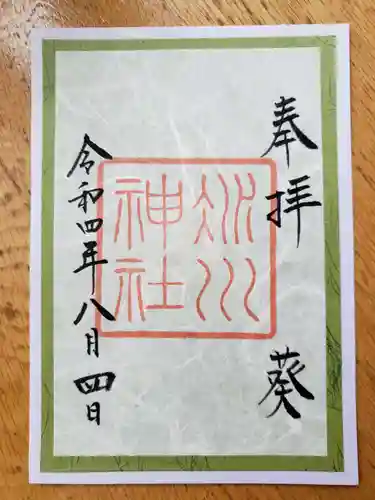 奉拝 葵
氷川
神社
令和四年八月四日